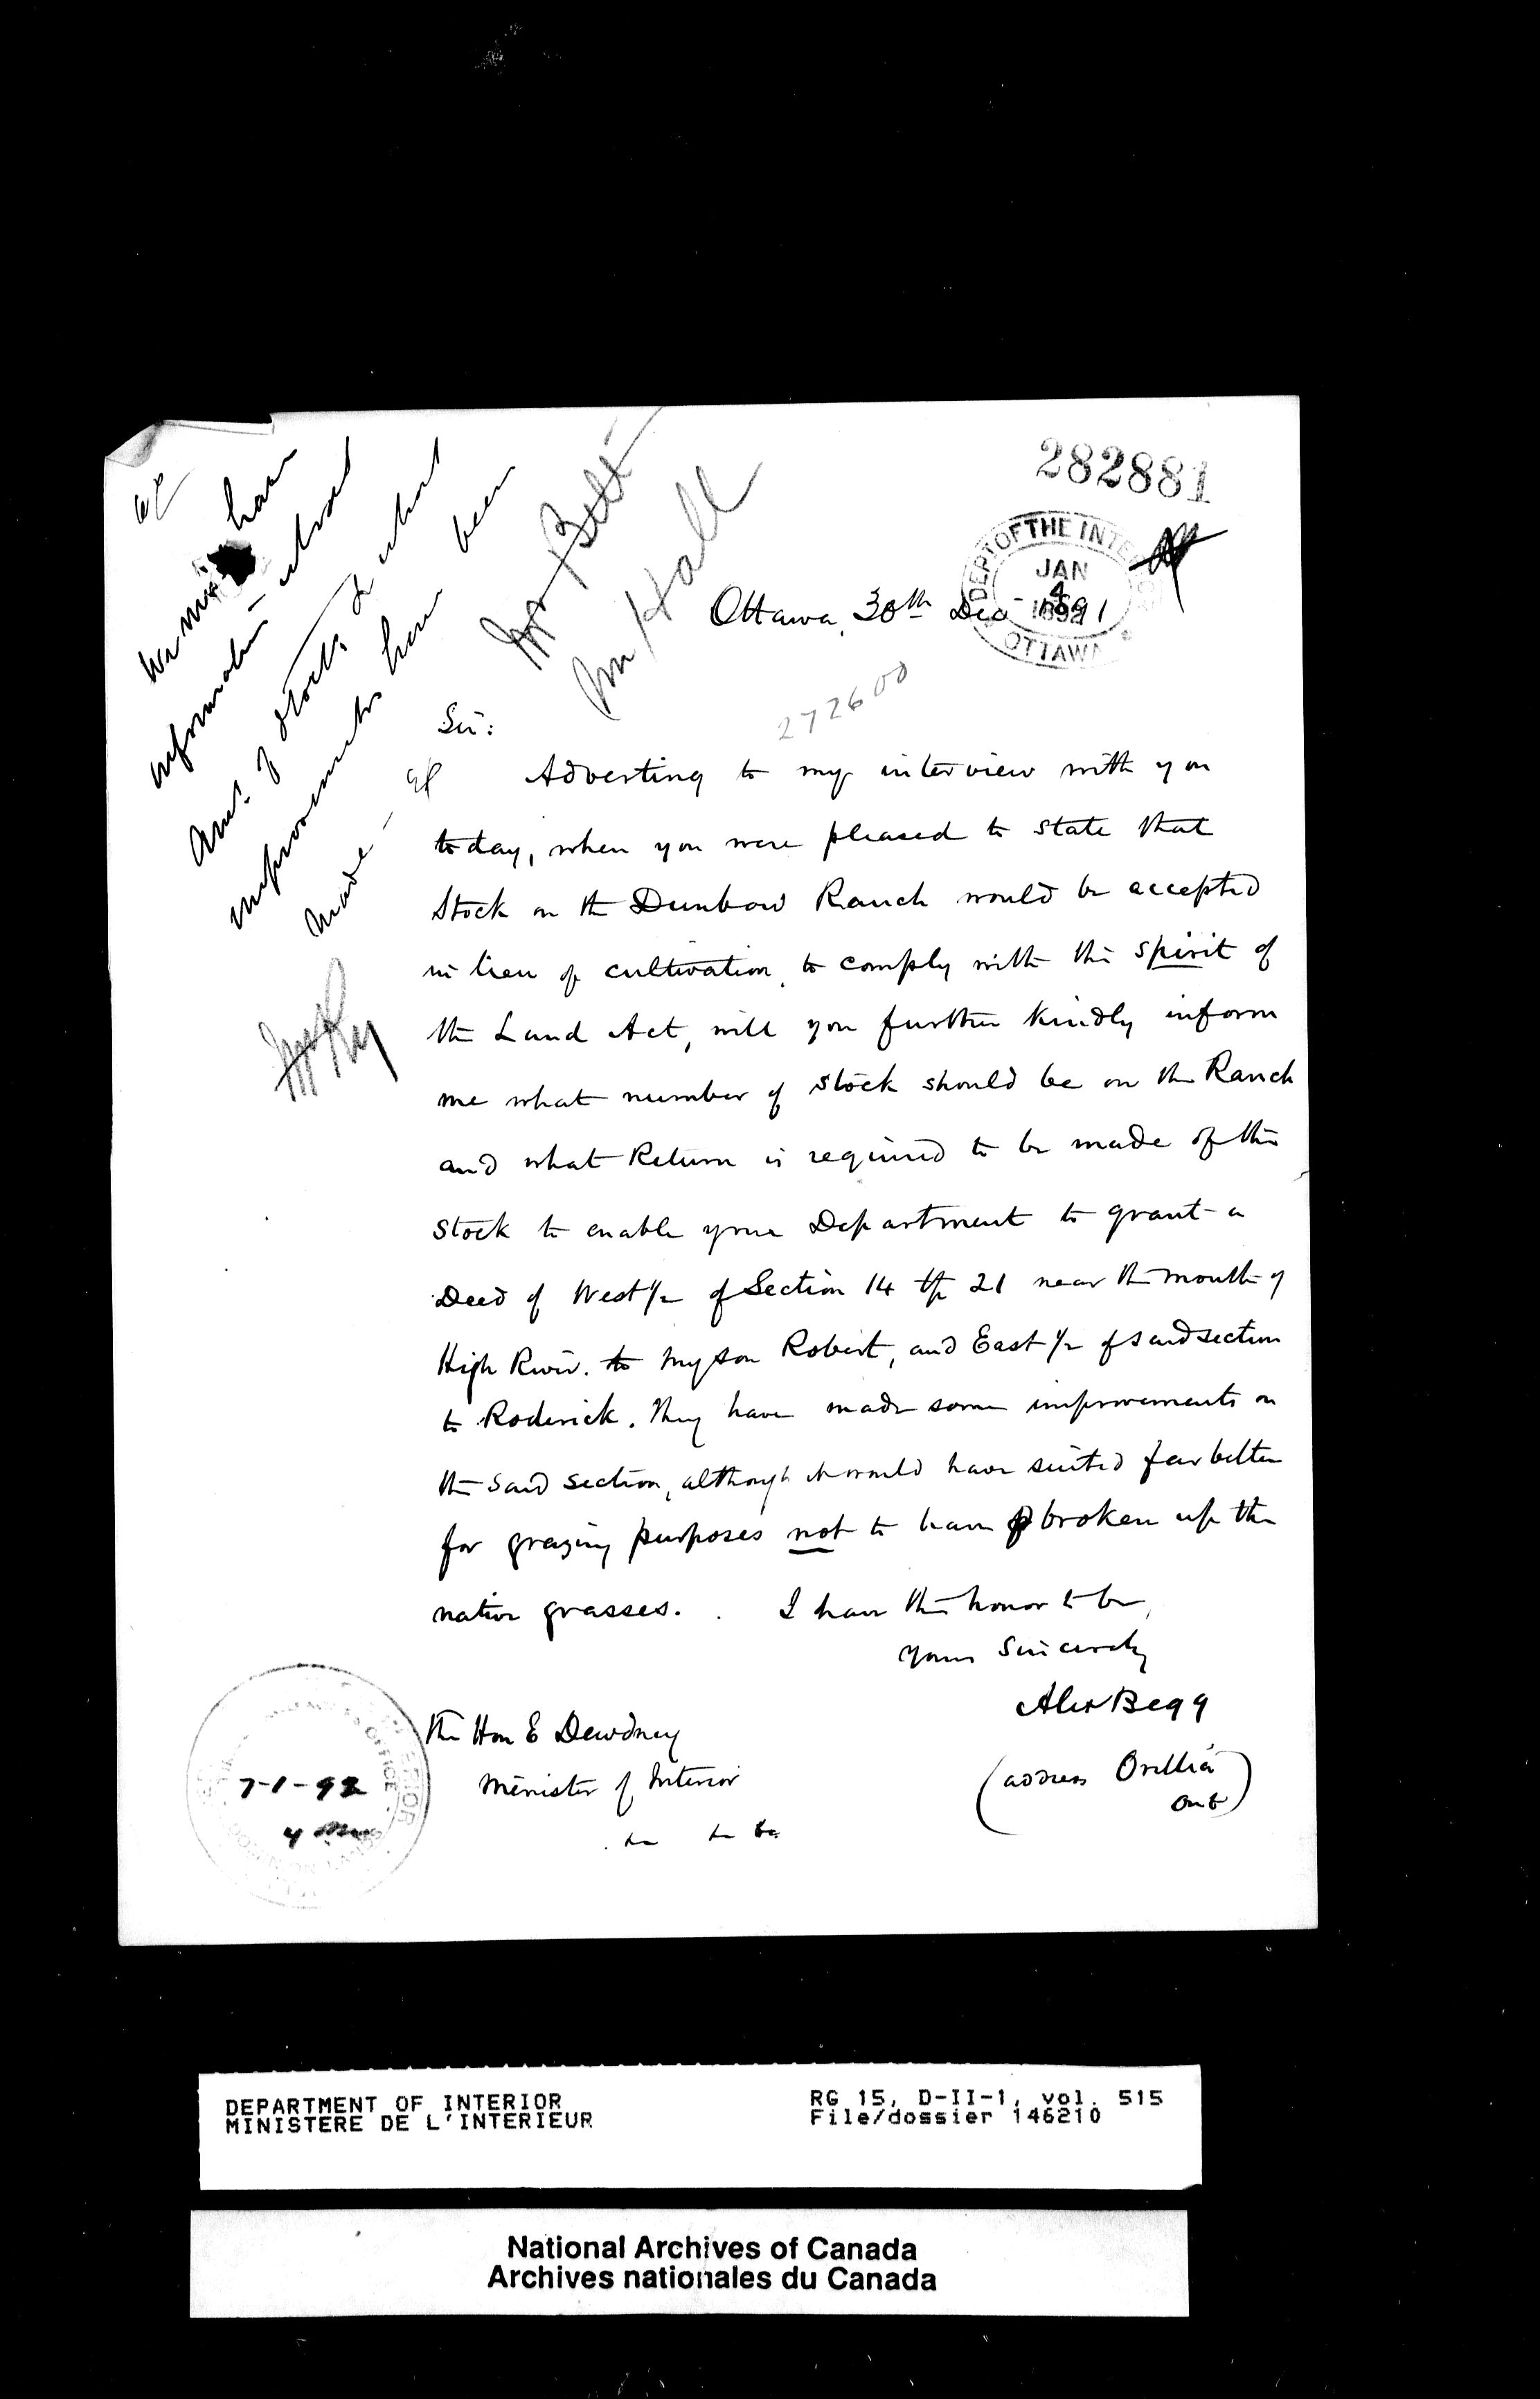 282881
DEPT OF THE INTERIOR
JAN
4
1892
OTTAWA
Ottawa, 30th Dec 1891
272600
Mr Hall
We must have
information about
amt. of stock & what
improvements have been
made —
Sir:
Adverting to my interview with you
to day, when you were pleased to state that
Stock on the Dunbow Ranch would be accepted
in lieu of cultivation, to comply with the spirit of
the Land Act, will you further kindly inform
me what number of stock should be on the Ranch
and what Return is required to be made of this
Stock to enable your Department to grant a
Deed of West 1/2 of Section 14 tp 21 near the mouth of
High River. to my son Robert, and East 1/2 of said section
to Roderick. They have made some improvements on
the said section, although it would have suited far better
for grazing purposes not to have broken up the
native grasses. I have the honor to be,
Yours Sincerely
Alex Begg
(address Orillia
Ont)
The Hon E Dewdney
Minister of Interior
7-1-92
DEPARTMENT OF INTERIOR
MINISTERE DE L'INTERIEUR
RG 15, D-II-1, vol. 515
File/dossier 146210
National Archives of Canada
Archives nationales du Canada